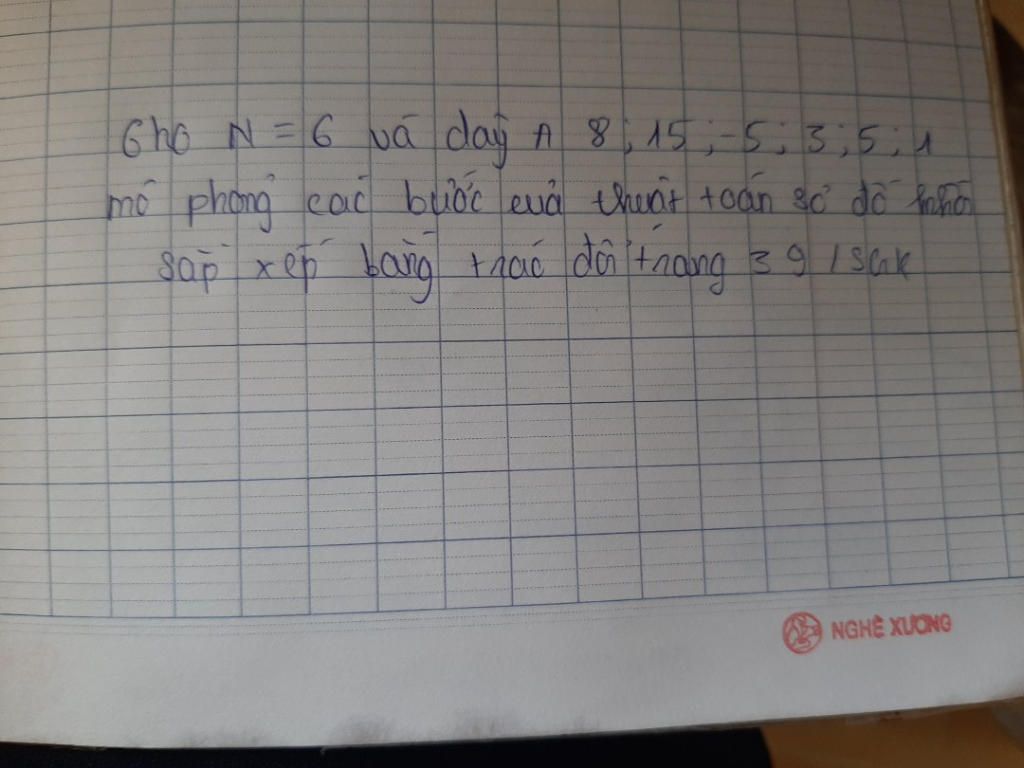 Cho N = 6 và dãy A 8 ; 15 ; -5 ; 3 ; 5 ; 1
mô phỏng các bước của thuật toán sơ đồ khối
sắp xếp bằng tráo đổi trang 39 / SGK
NGHÊ XƯƠNG